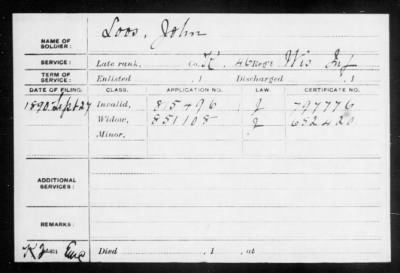 Loos, John
NAME OF SOLDIER:
SERVICE: Late rank, Co. K. 46 Reg't Wis Inf
TERM OF SERVICE: Enlisted , 1 Discharged , 1
DATE OF FILING. CLASS. APPLICATION NO. LAW. CERTIFICATE NO.
1890 Sept 27 Invalid, 815496 J 797776
Widow, 851108 J 652420
Minor,
ADDITIONAL SERVICES:
REMARKS:
Died , 1 , at